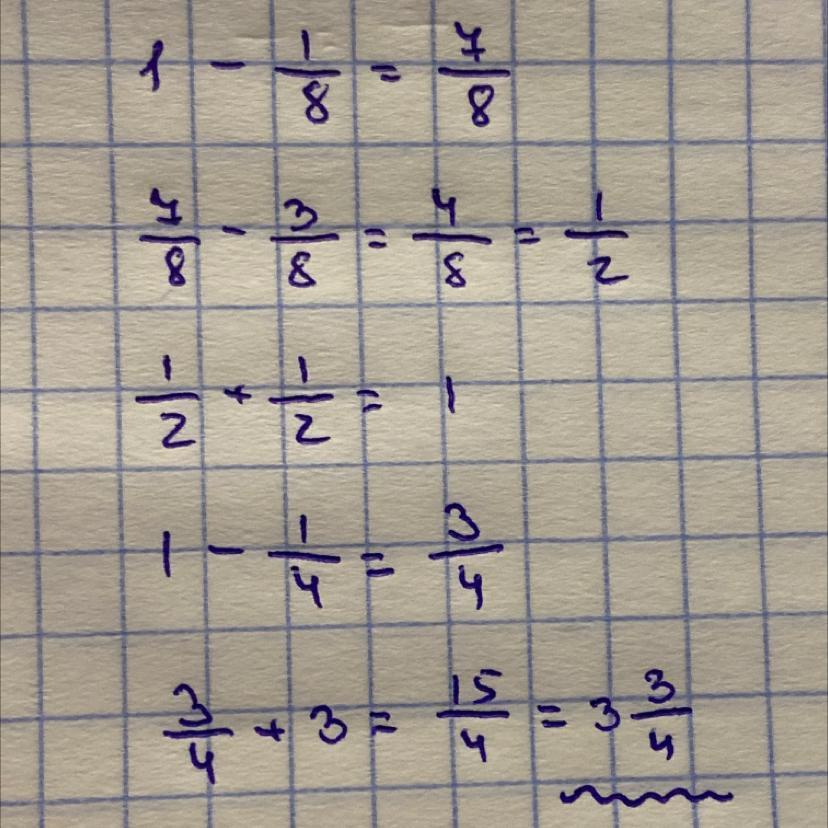 1 - 1/8 = 7/8
7/8 - 3/8 = 4/8 = 1/2
1/2 + 1/2 = 1
1 - 1/4 = 3/4
3/4 + 3 = 15/4 = 3 3/4